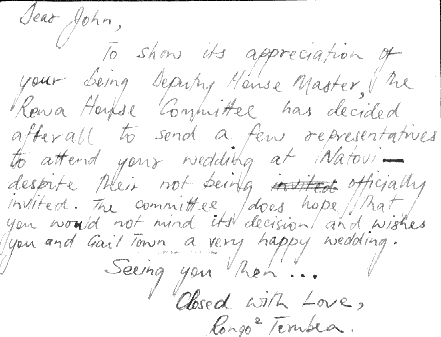 Dear John,
To show its appreciation of
your being Deputy House Master, the
Rowa House Committee has decided
after all to send a few representatives
to attend your wedding at Natovi—
despite their not being invited officially
invited. The committee does hope that
you would not mind its decision and wishes
you and Gail Town a very happy wedding.
Seeing you then ...
Closed with Love,
Rongo² Tembea.